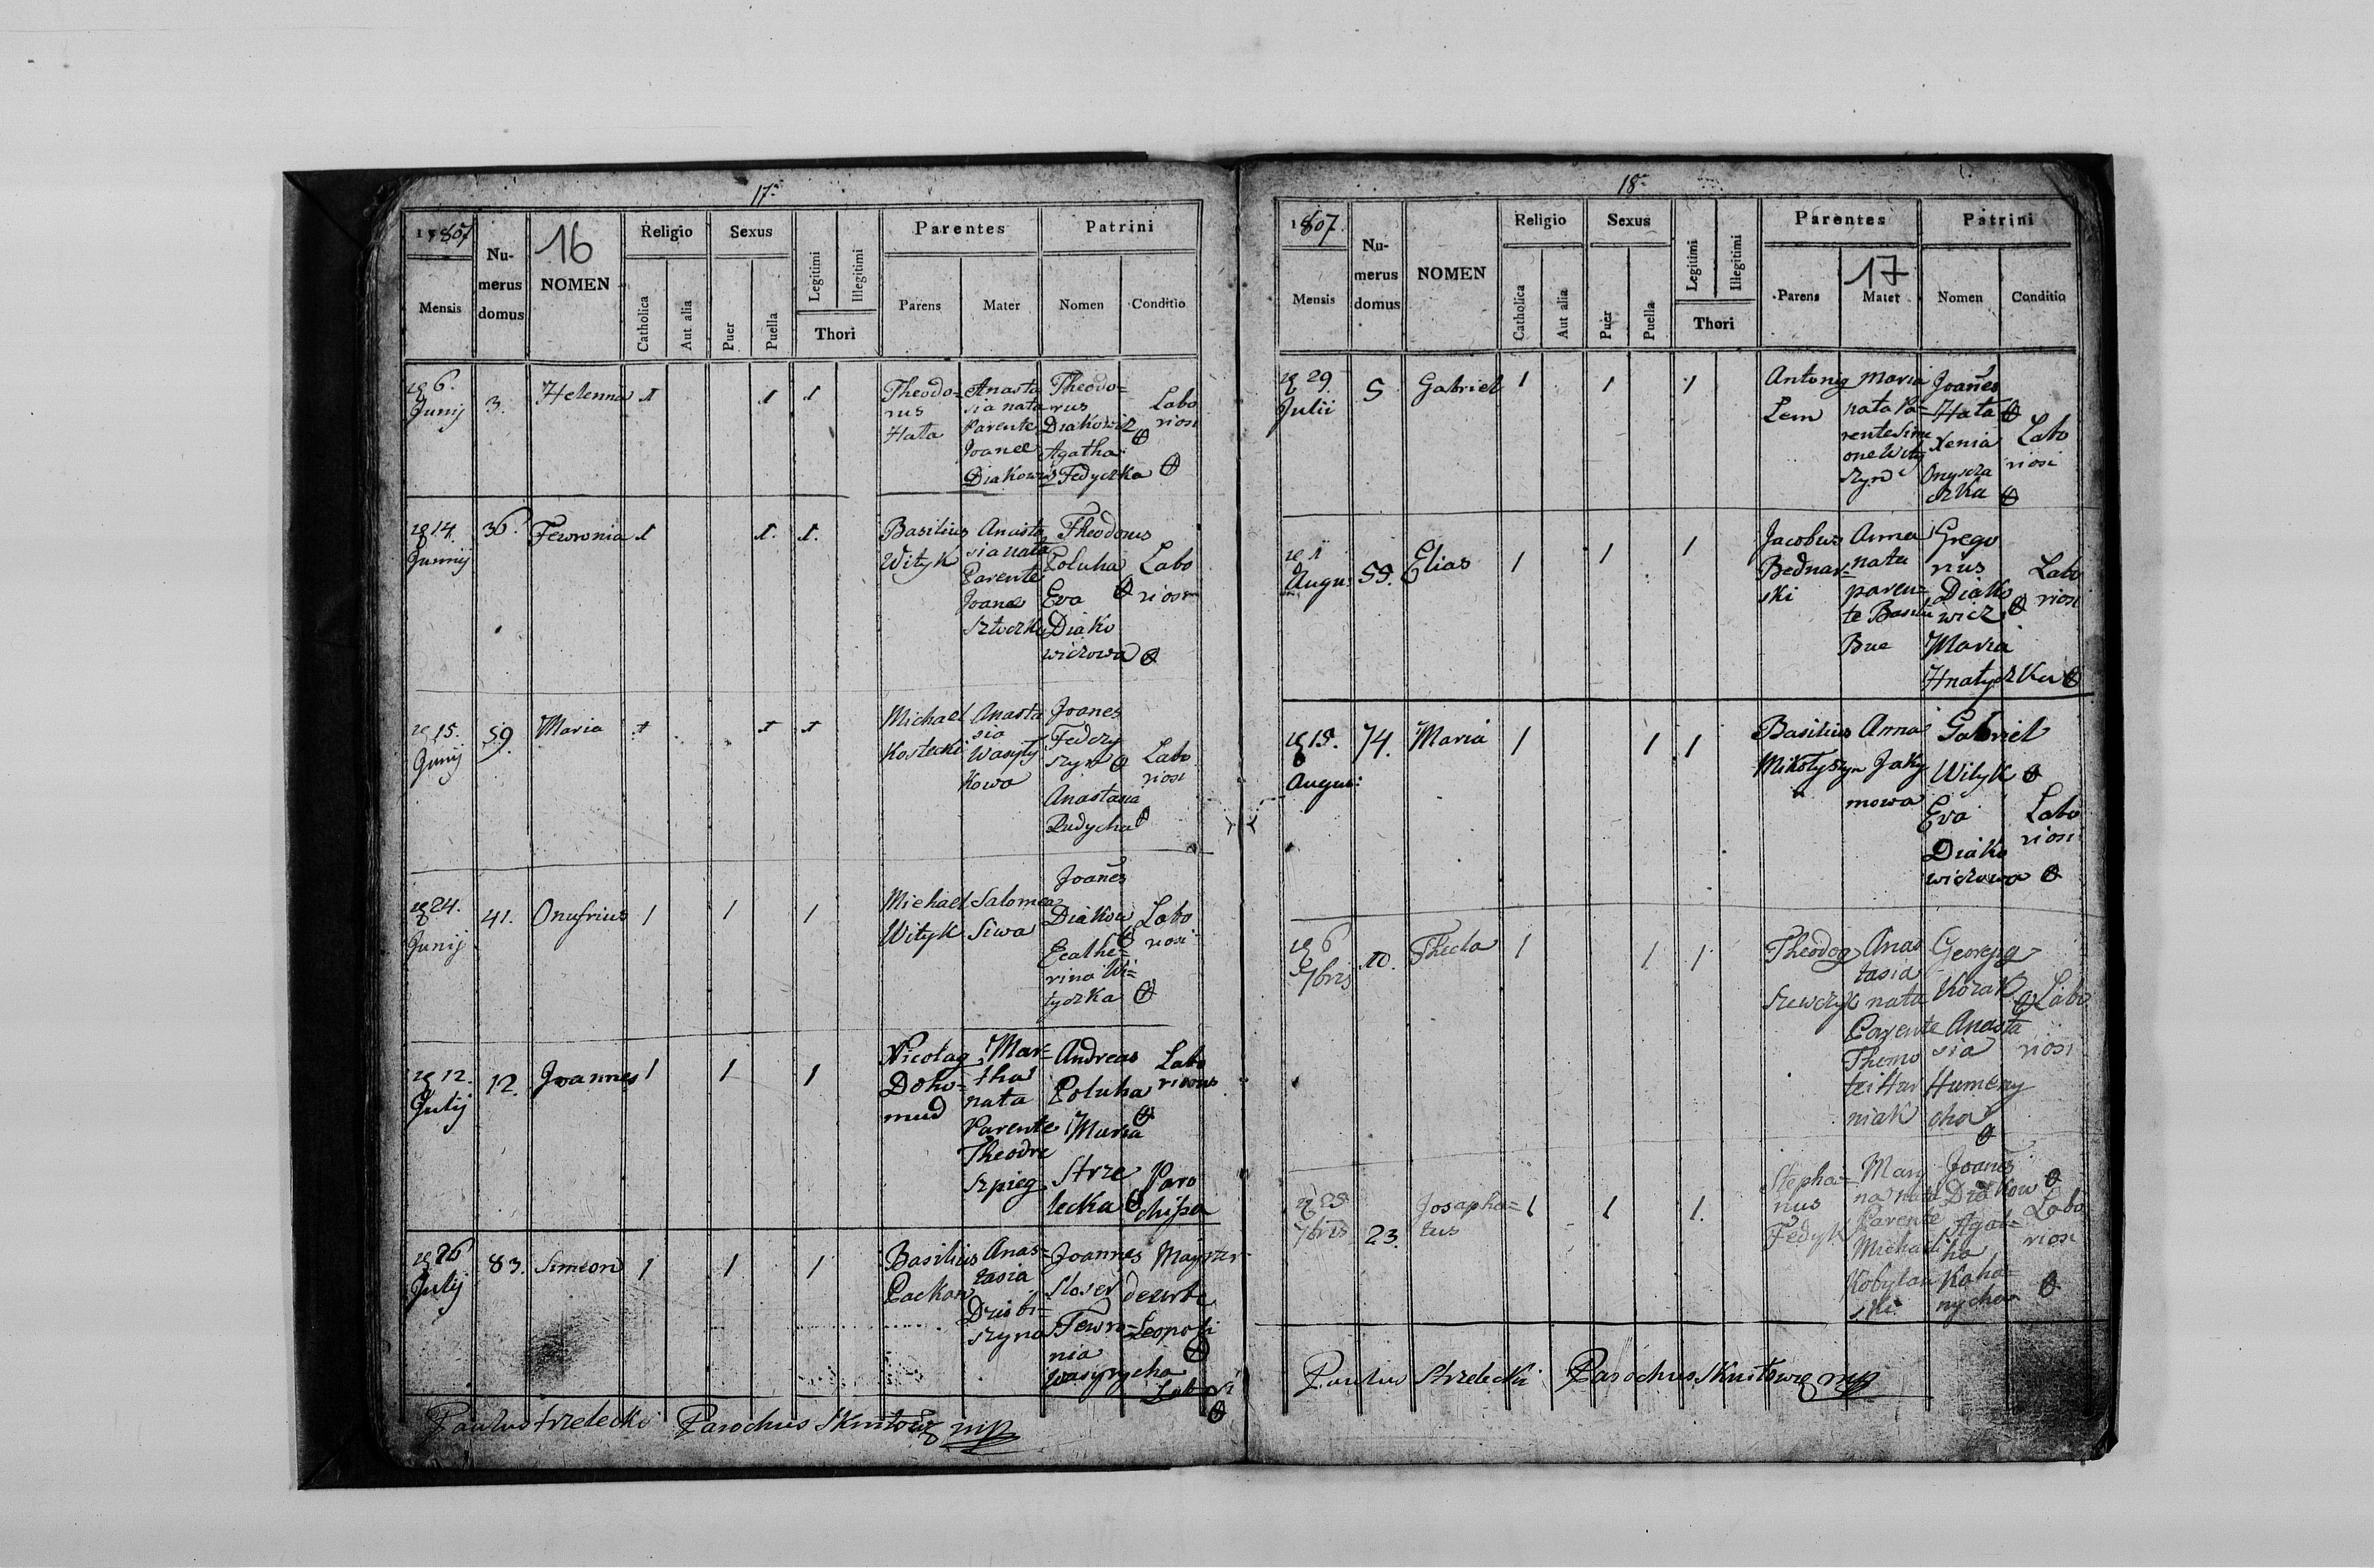 17.
1807
Mensis
Nu-
merus
domus
16
NOMEN
Religio
Catholica
Aut alia
Sexus
Puer
Puella
Legitimi
Illegitimi
Thori
Parentes
Parens
Mater
Patrini
Nomen
Conditio
6.
Junij
3.
Helenna
1
1
1
Theodo=
rus
Hata
Anasta
sia nata
Parente
Joanee
Diakowicz
Theodo=
rus
Diakowicz
Agatha
Fedyczka
Labo
riosi
14.
Junij
36.
Fewronia
1
1.
1.
Basilius
Wityk
Anasta
sia nata
Parente
Joane
Theodorus
Poluha
Eva
Diako
wiczowa
Labo
riosi
15.
Junij
59.
Maria
1
1
1
Michael
Kostecki
Anasta
sia
Wasyly
kowa
Joanes
Fedczy
szyn
Anastasia
Rudycha
Labo
riosi
24.
Junij
41.
Onufrius
1
1
1
Michael
Wityk
Salomea
Siwa
Joanes
Diakow
Ecathe=
rina Wi=
tyczka
Labo
riosi
12.
Julij
12.
Joannes
1
1
1
Nicolaq
Doho=
mud
Mar=
tha
nata
Parente
Theodre
Szpieg
Andreas
Poluha
Maria
Strze
lecka
Labo
riosus
Paro
chissa
26
Julij
83.
Simeon
1
1
1
Basilius
Packan
Anas=
tasia
szyna
Joannes
Sloser
Fewro=
nia
Wasyrycha
Magister
de urbe
Leopoli
Labori
Paulus Strzelecki Parochus Sknitowq mp
18.
1807.
Mensis
Nu-
merus
domus
NOMEN
Religio
Catholica
Aut alia
Sexus
Puer
Puella
Legitimi
Illegitimi
Thori
Parentes
Parens
17
Mater
Patrini
Nomen
Conditio
29.
Julii
5
Gabriel
1
1
1
Antonig
Lem
Maria
nata Pa=
rente Sime
one Wity
szyn
Joanes
Hata
Xenia
Onyszcza
czka
Labo
riosi
1
Augu:
55.
Elias
1
1
1
Jacobus
Bednar=
ski
Anna
nata
paren=
te Basili
Bue
Grego
rius
Diako
wicz
Maria
Hnatyczka
Labo
riosi
15.
Augus:
74.
Maria
1
1
1
Basilius
Mikolyszyn
Anna
Jaky
mowa
Gabriel
Wityk
Eva
Diako
wiczowa
Labo
riosi
6
7bris
10.
Thecla
1
1
1
Theodog
Szewczyk
Anas
tasia
nata
Parente
Thomo
tei Hur
niak
Georgig
Kozak
Anasta
sia
Humeny
cha
Labo
riosi
25
7bris
23.
Josapha=
tus
1
1
1.
Stepha=
nus
Fedyk
Mary
na nata
Parente
Michaele
Kobylan
ski
Joanes
Diakow
Agat=
ha
Koha=
nycha
Labo
riosi
Paulus Strzelecki Parochus Sknitowq mp